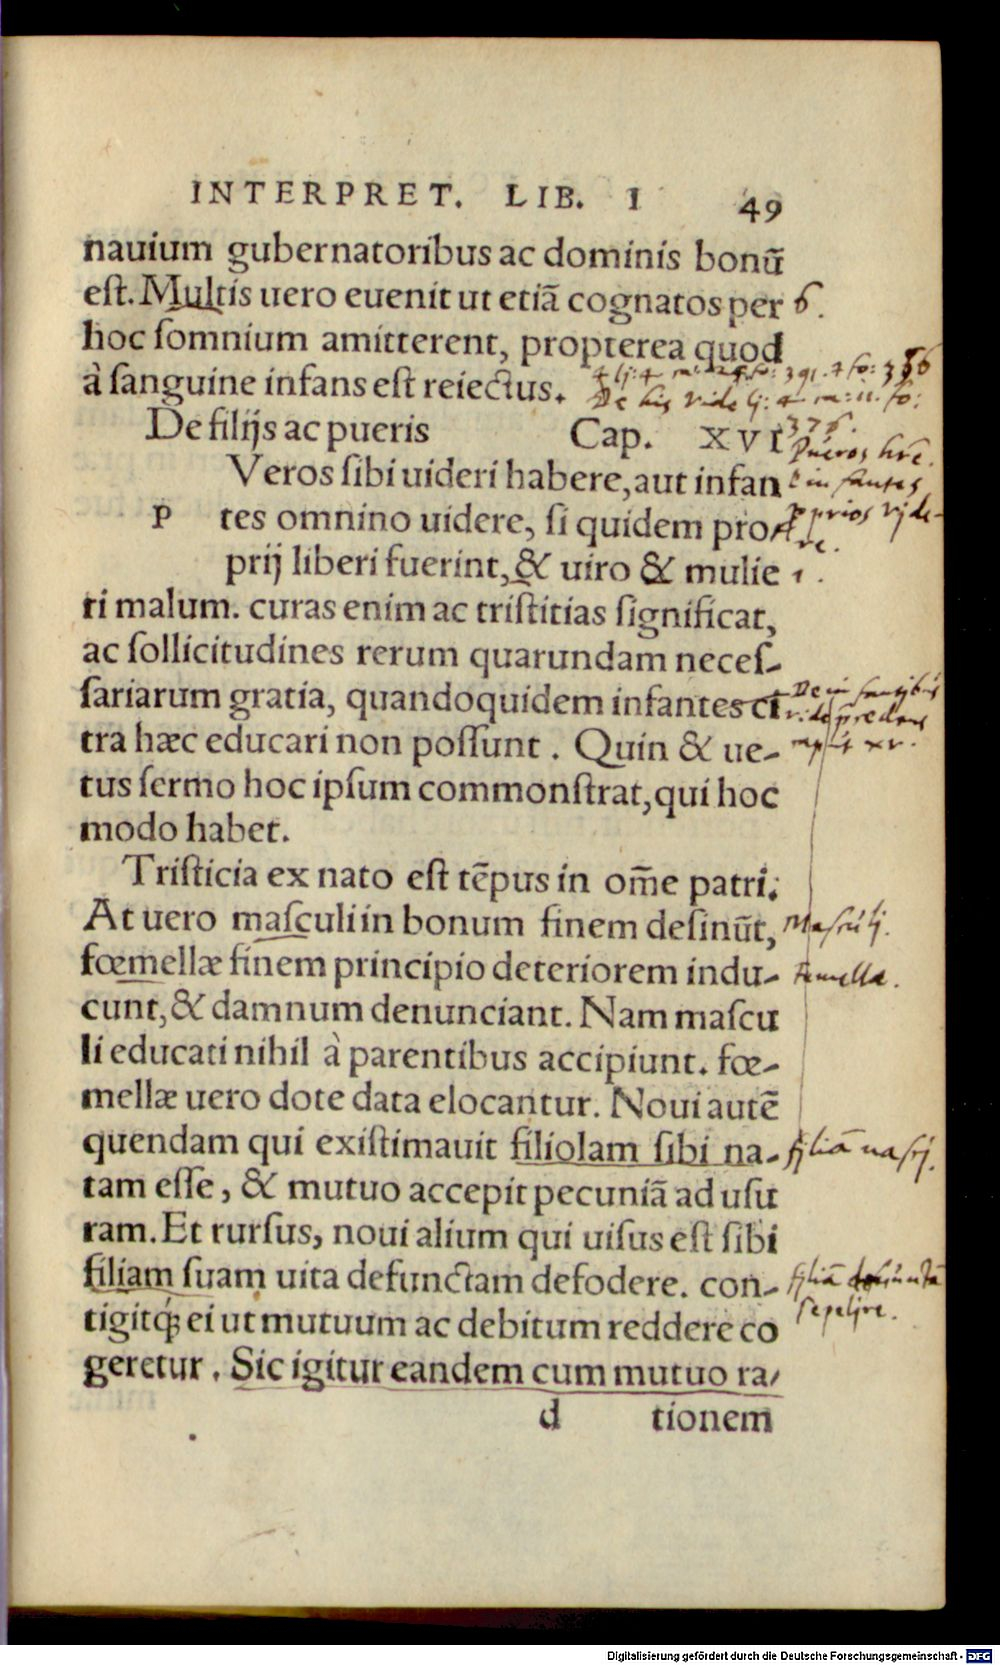 INTERPRET. LIB. I 49
nauium gubernatoribus ac dominis bonū
est. Multis uero euenit ut etiā cognatos per 6.
hoc somnium amitterent, propterea quod
à sanguine infans est reiectus.
De his vide lj: 4
De filijs ac pueris Cap. XVI
376.
Pueros hrē.
Veros sibi uideri habere, aut infan
infantes
P tes omnino uidere, si quidem pro
pprios vjde-
re.
prij liberi fuerint, & uiro & mulie 1.
ri malum. curas enim ac tristitias significat,
ac sollicitudines rerum quarundam neces-
sariarum gratia, quandoquidem infantes ci
De infantibus
vide
tra hæc educari non possunt. Quin & ue-
xv.
tus sermo hoc ipsum commonstrat, qui hoc
modo habet.
Tristicia ex nato est tēpus in om̄e patri.
At uero masculi in bonum finem desinūt,
Masculj.
fœmellæ finem principio deteriorem indu-
femellæ.
cunt, & damnum denunciant. Nam mascu
li educati nihil à parentibus accipiunt. fœ-
mellæ uero dote data elocantur. Noui autē
quendam qui existimauit filiolam sibi na-
filiā nascj.
tam esse, & mutuo accepit pecuniā ad usu
ram. Et rursus, noui alium qui uisus est sibi
filiam suam uita defunctam defodere. con-
filiā defunctā
sepeljre.
tigitq́; ei ut mutuum ac debitum reddere co
geretur. Sic igitur eandem cum mutuo ra-
d tionem
Digitalisierung gefördert durch die Deutsche Forschungsgemeinschaft - DFG